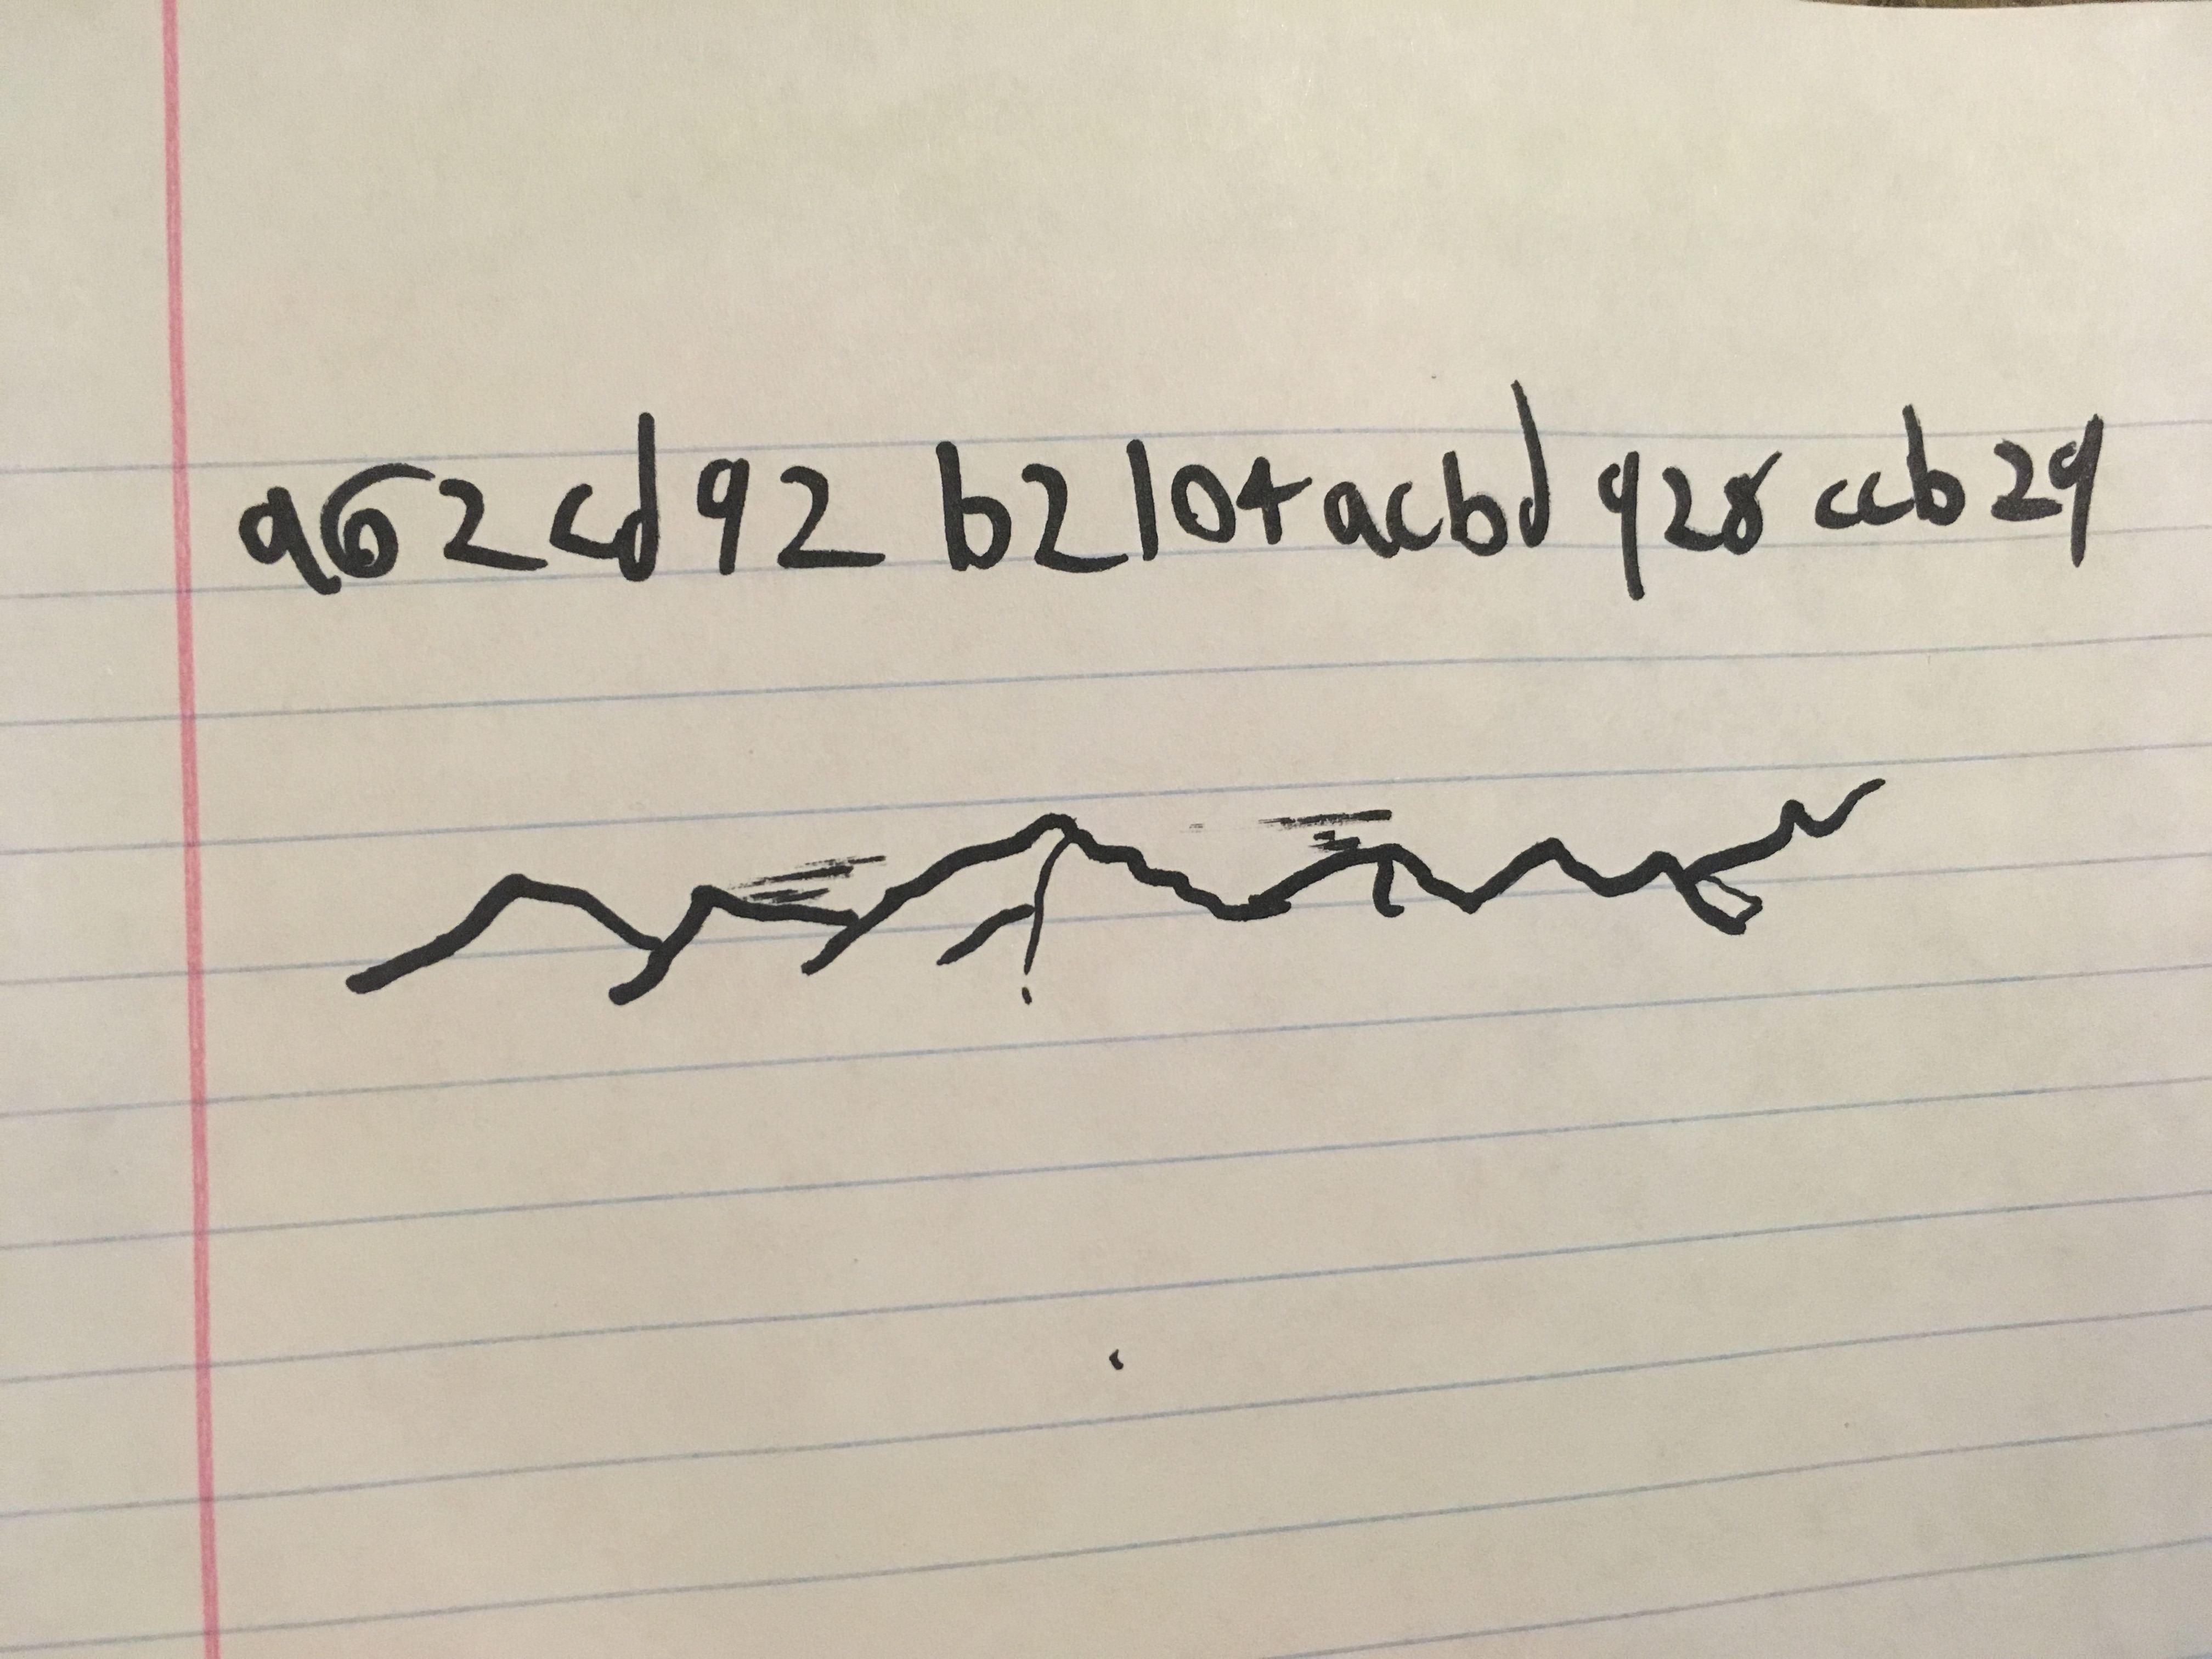 a62cd92 b210+acbd928ccb29